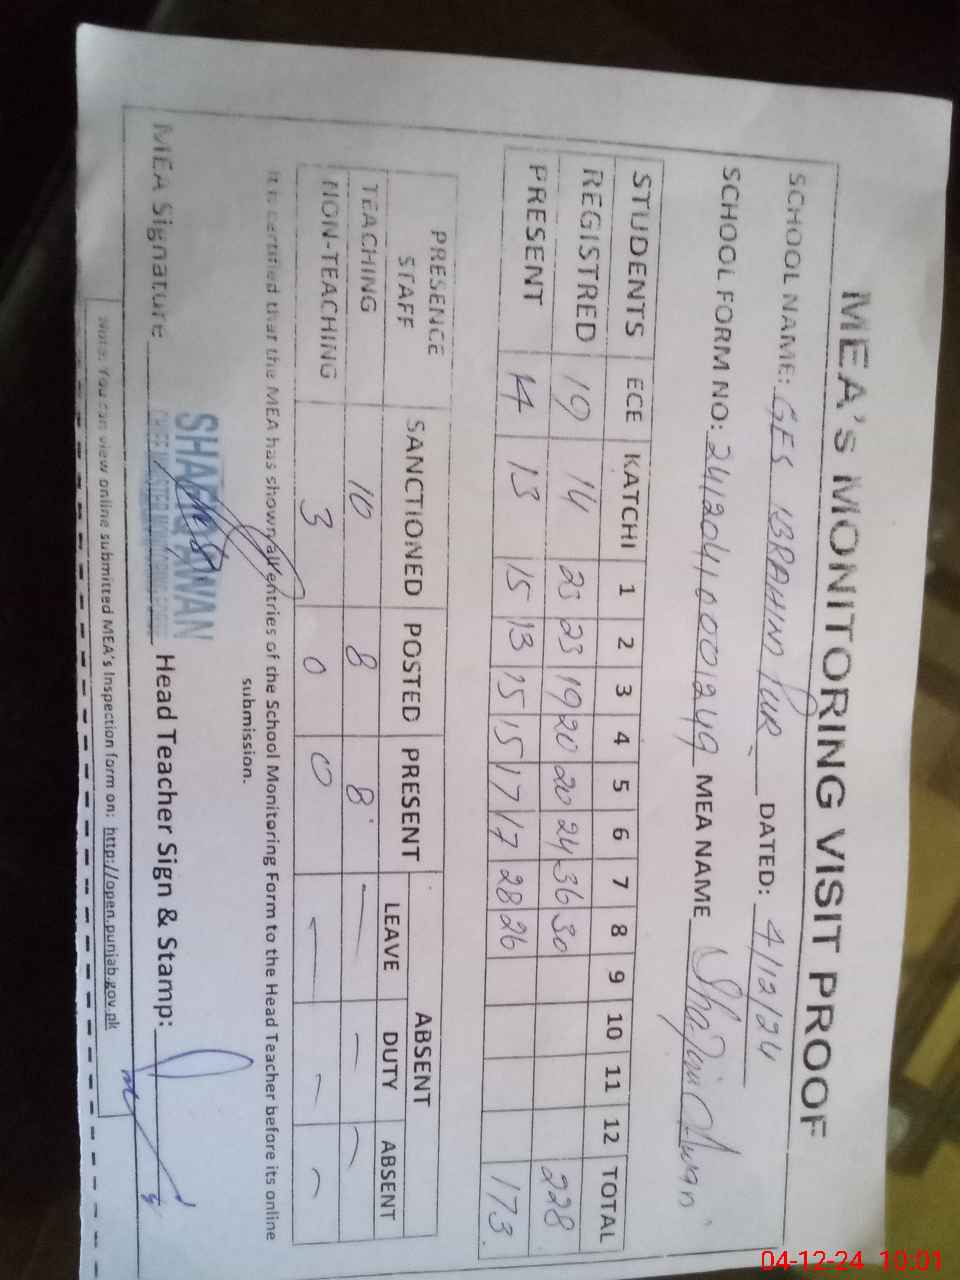 MEA's MONITORING VISIT PROOF
SCHOOL NAME: GES IBRAHIM PUR DATED: 4/12/24
SCHOOL FORM NO: MEA NAME Shafiq Awan
STUDENTS ECE KATCHI 1 2 3 4 5 6 7 8 9 10 11 12 TOTAL
REGISTRED 19 14 23 23 19 20 20 24 36 30 228
PRESENT 14 13 15 13 15 15 17 17 28 26 173
PRESENCE STAFF SANCTIONED POSTED PRESENT ABSENT
LEAVE DUTY ABSENT
TEACHING 10 8 8 — — —
NON-TEACHING 3 0 0 — — —
It is certified that the MEA has shown all entries of the School Monitoring Form to the Head Teacher before its online
submission.
SHAFIQ AWAN
MEA Signature Head Teacher Sign & Stamp:
Note: You can view online submitted MEA's Inspection form on: http://open.punjab.gov.pk
04-12-24 10:01